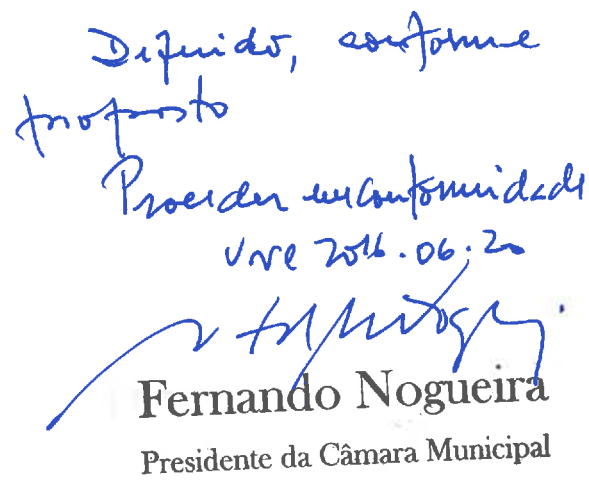 Deferido, conforme
proposto
Proceder em conformidade
VNC 2016.06.20
Fernando Nogueira
Presidente da Câmara Municipal